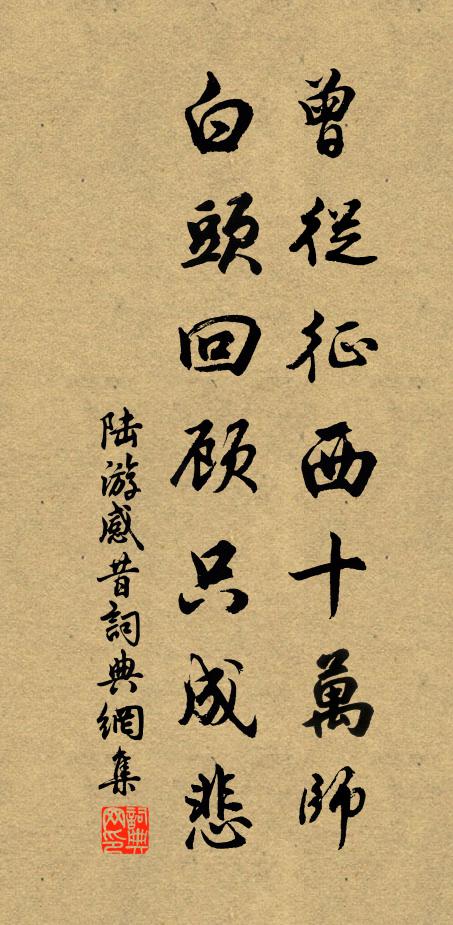 曾從征西十萬師
白頭回顧只成悲
陸游感昔詞典網集
詞典网印